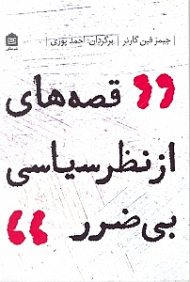 جیمز فین گارنر | برگردان: احمد پوری
”قصه‌های
از نظر سیاسی
بی‌ضرر“